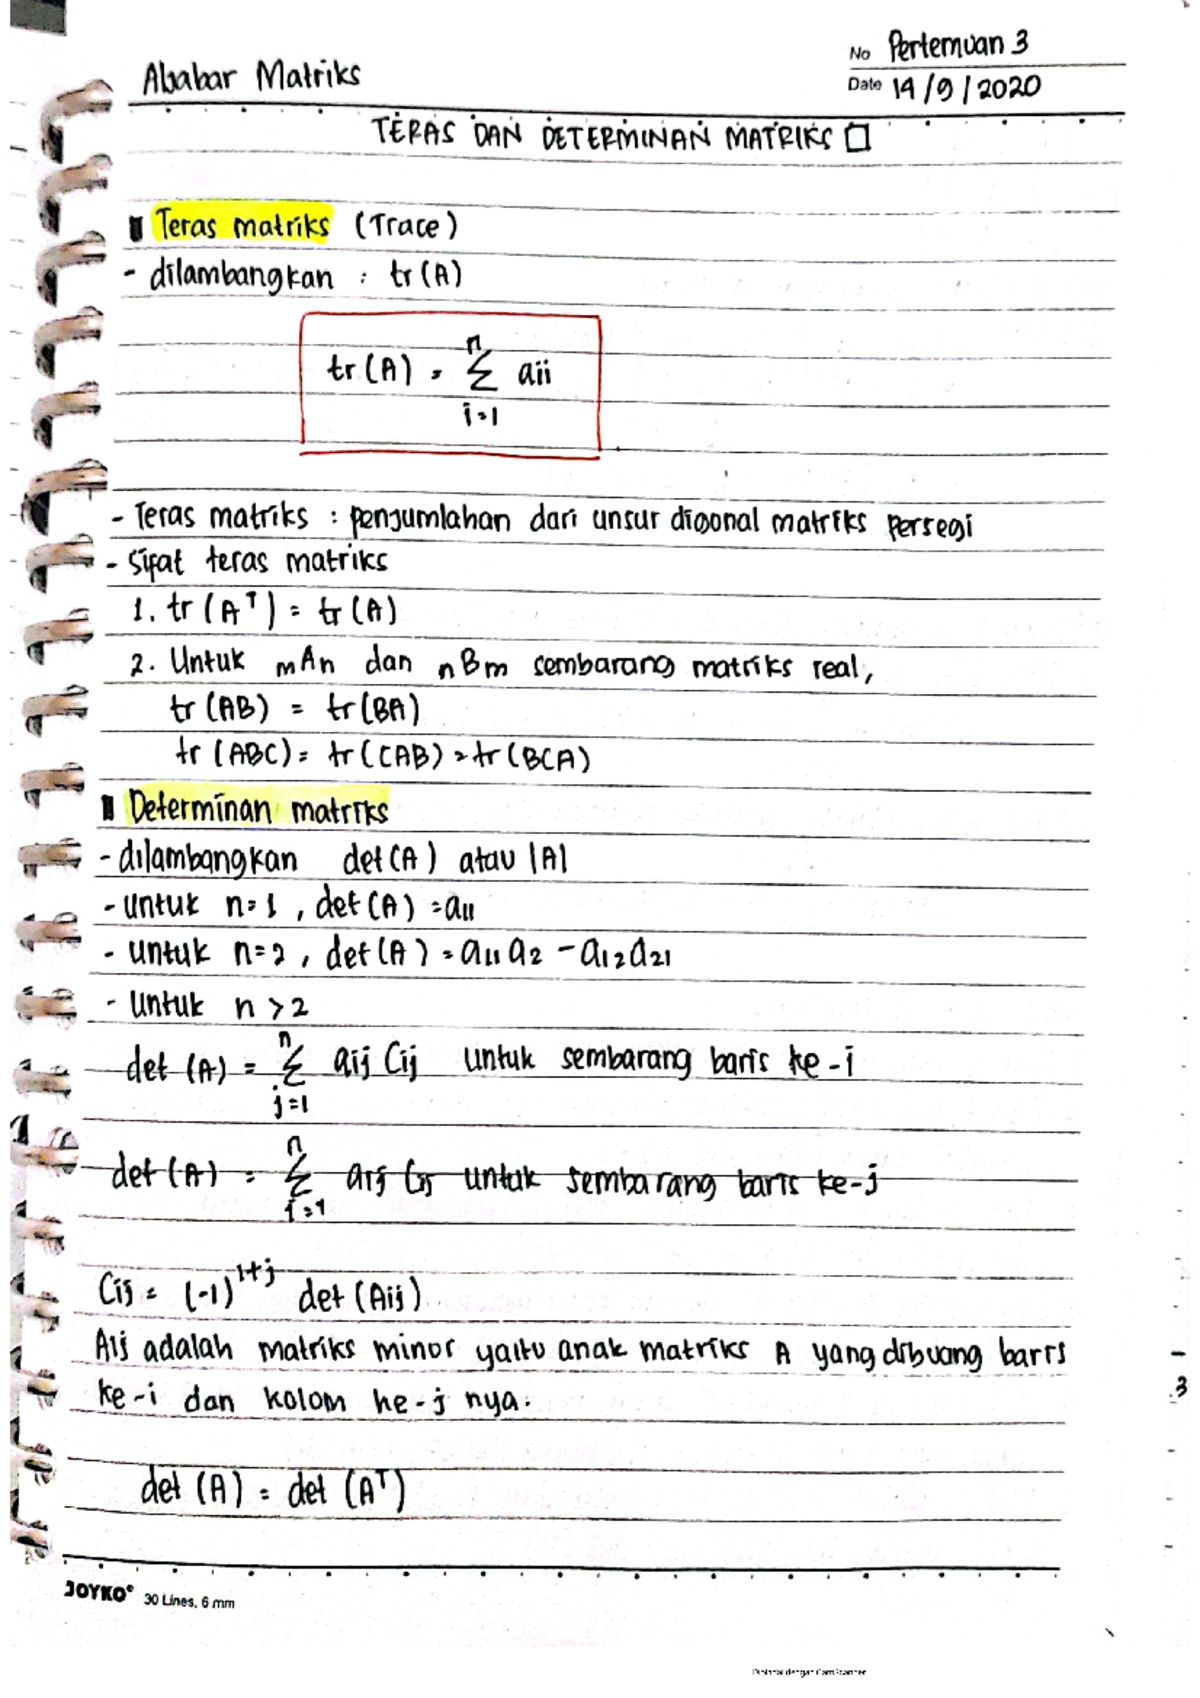 No Pertemuan 3
Ababar Matriks
Date 14/9/2020
TERAS DAN DETERMINAN MATRIKS □
Teras matriks (Trace)
- dilambangkan : tr(A)
n
tr(A) = Σ aii
i=1
- Teras matriks : penjumlahan dari unsur digonal matriks persegi
- Sifat teras matriks
1. tr(Aᵀ) = tr(A)
2. Untuk mAn dan nBm sembarang matriks real,
tr(AB) = tr(BA)
tr(ABC) = tr(CAB) = tr(BCA)
Determinan matriks
- dilambangkan det(A) atau |A|
- untuk n=1, det(A) = a11
- untuk n=2, det(A) = a11 a2 - a12 a21
- Untuk n > 2
n
det(A) = Σ aij Cij untuk sembarang baris ke-i
j=1
n
det(A) = Σ aij Cij untuk sembarang baris ke-j
i=1
Cij = (-1)^i+j det(Aij)
Aij adalah matriks minor yaitu anak matriks A yang dibuang baris
ke-i dan kolom ke-j nya.
3
det(A) = det(Aᵀ)
JOYKO® 30 Lines, 6 mm
Dipindai dengan CamScanner